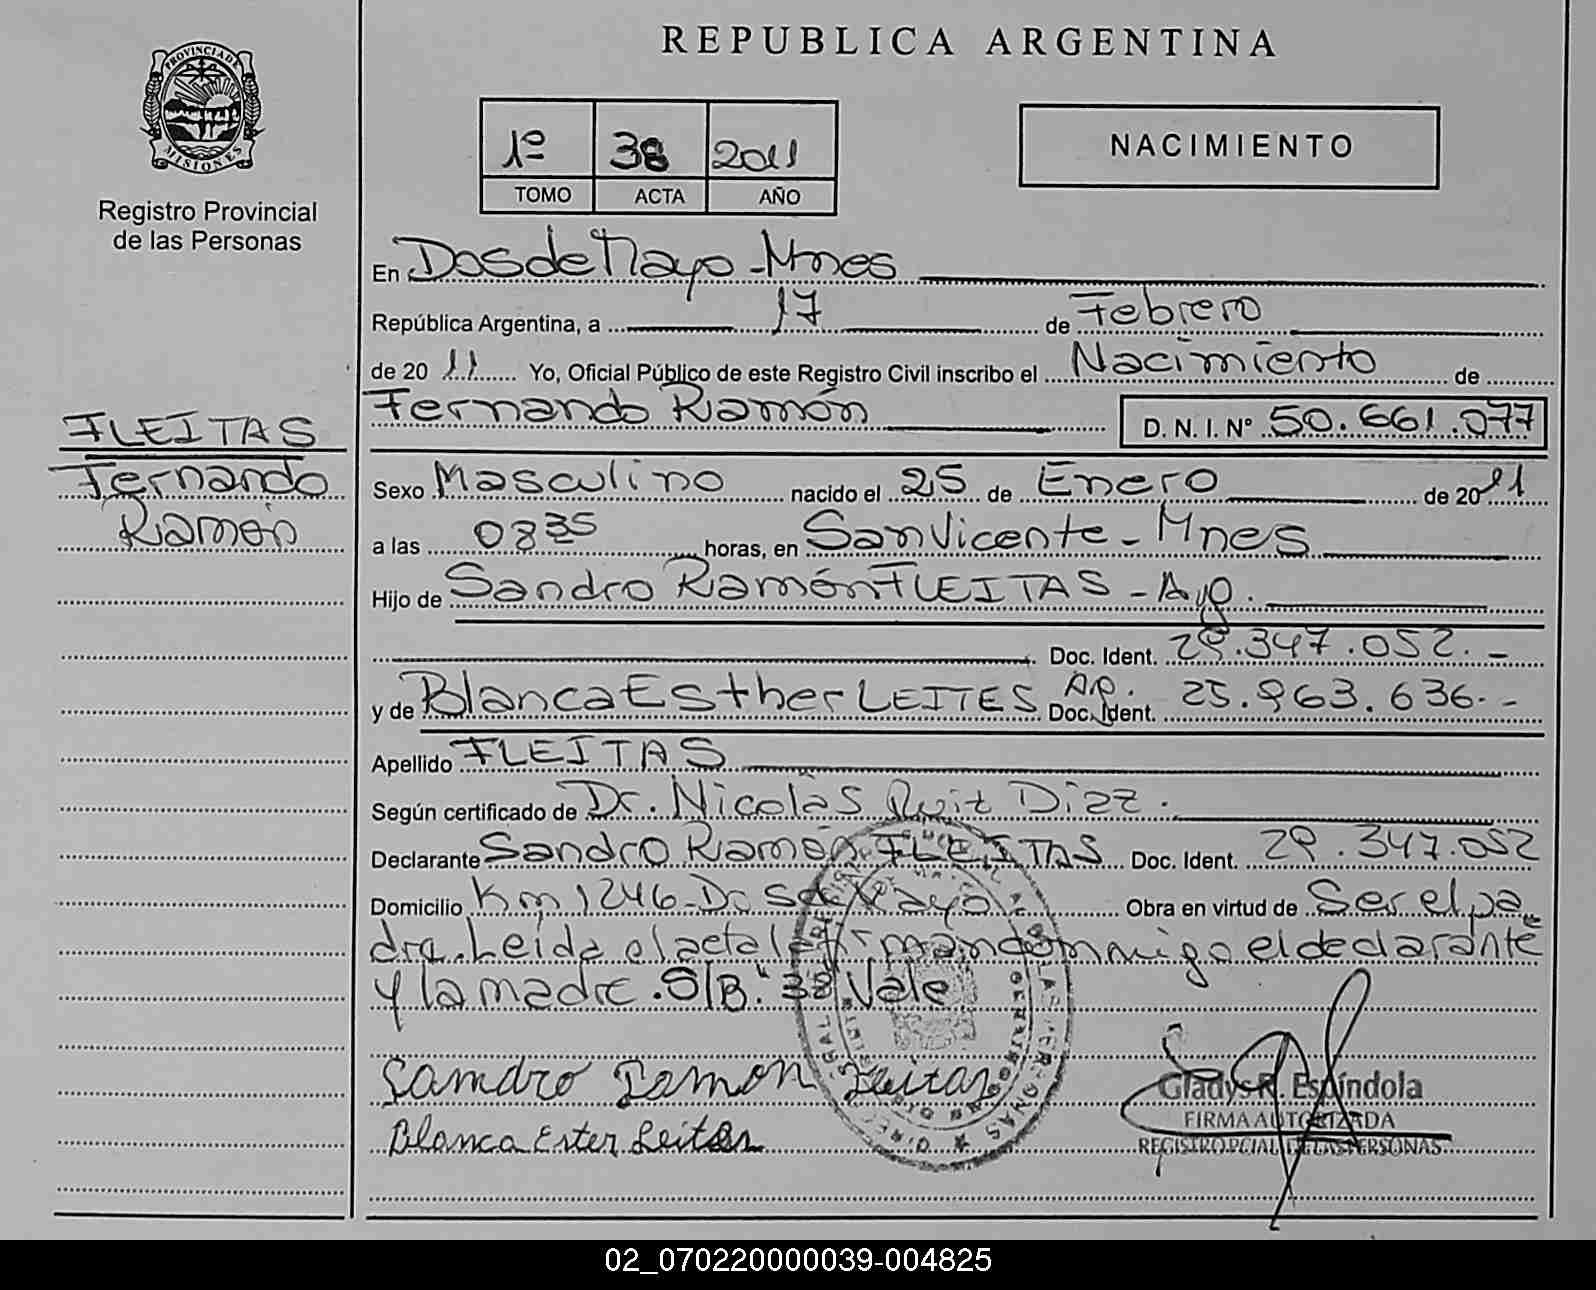 PROVINCIA DE
MISIONES
Registro Provincial
de las Personas
FLEITAS
Fernando
Ramón
REPUBLICA ARGENTINA
1º 38 2011
TOMO ACTA AÑO
NACIMIENTO
En Dos de Mayo - Mnes
República Argentina, a 17 de Febrero
de 2011 Yo, Oficial Público de este Registro Civil inscribo el Nacimiento de
Fernando Ramón D. N. I. Nº 50.661.077
Sexo Masculino nacido el 25 de Enero de 2011
a las 0835 horas, en San Vicente - Mnes
Hijo de Sandro Ramón FLEITAS - Arg.
Doc. Ident. 29.347.052.-
y de Blanca Esther LEITES Arg. Doc. Ident. 25.963.636.-
Apellido FLEITAS
Según certificado de Dr. Nicolás Ruiz Diaz.
Declarante Sandro Ramón FLEITAS Doc. Ident. 29.347.052
Domicilio Km 1246 - Dos de Mayo Obra en virtud de Ser el pa
dre. Leida el acta la firman conmigo el declarante
y la madre. S/B: "38" Vale
Sandro Ramon Fleitas
Blanca Ester Leites
Gladys R. Espíndola
FIRMA AUTORIZADA
REGISTRO PCIAL. DE LAS PERSONAS
02_070220000039-004825